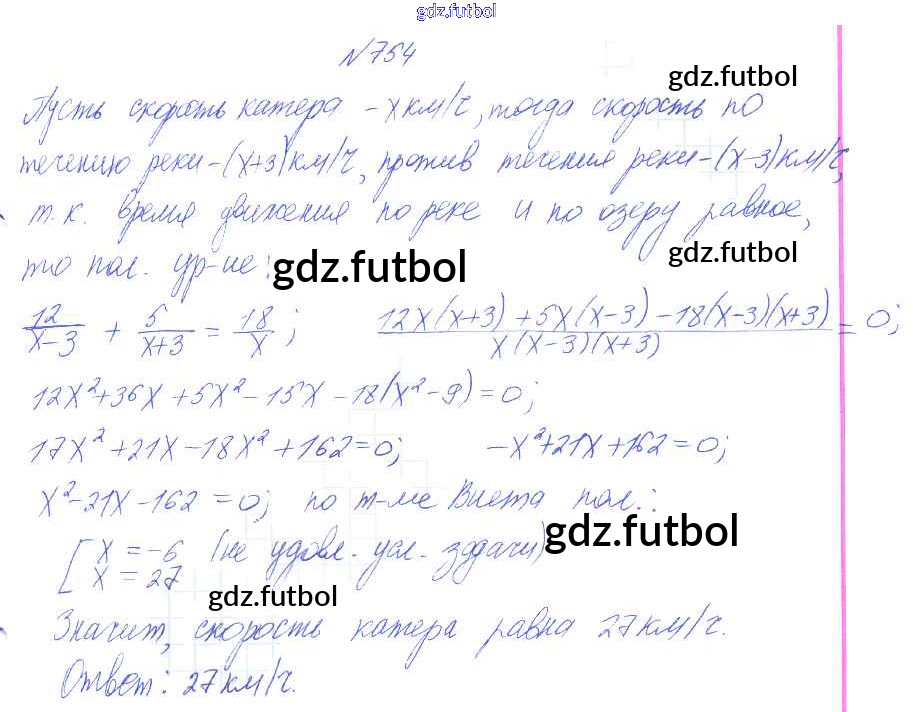 gdz.futbol
№754
gdz.futbol
Пусть скорость катера – x км/ч, тогда скорость по
течению реки – (x+3) км/ч, против течения реки – (x–3) км/ч,
т.к. время движения по реке и по озеру равное,
gdz.futbol
то пол. ур-ие: gdz.futbol
12/(x–3) + 5/(x+3) = 18/x; (12x(x+3) + 5x(x–3) – 18(x–3)(x+3))/(x(x–3)(x+3)) = 0;
12x²+36x+5x²–15x–18(x²–9)=0;
17x²+21x–18x²+162=0; –x²+21x+162=0;
x²–21x–162=0; по т-ме Виета пол.:
gdz.futbol
[x=–6 (не удовл. усл. задачи)
x=27
gdz.futbol
Значит, скорость катера равна 27км/ч.
Ответ: 27км/ч.